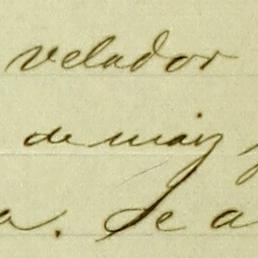 velador
de maiz
a. Se a